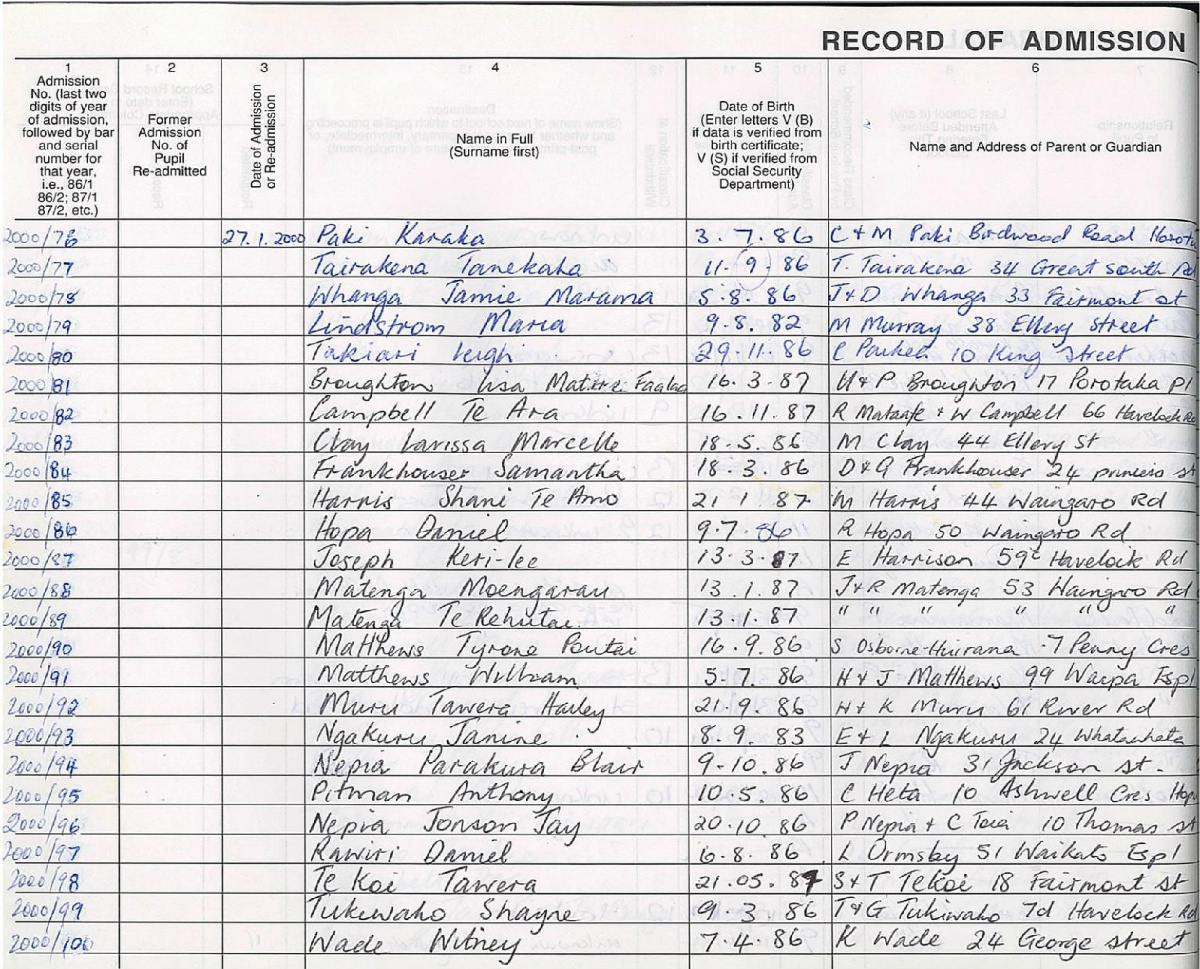 RECORD OF ADMISSION
1 2 3 4 5 6
Admission No. (last two digits of year of admission, followed by bar and serial number for that year, i.e., 86/1 86/2; 87/1 87/2, etc.)
Former Admission No. of Pupil Re-admitted
Date of Admission or Re-admission
Name in Full (Surname first)
Date of Birth (Enter letters V (B) if data is verified from birth certificate; V (S) if verified from Social Security Department)
Name and Address of Parent or Guardian
2000/76 27.1.2000 Paki Karaka 3.7.86 C & M Paki Birdwood Road
2000/77 Tairakena Tanekaha 11.9.86 T. Tairakena 34 Great south Rd
2000/78 Whanga Jamie Marama 5.8.86 J & D Whanga 33 Fairmont st
2000/79 Lindstrom Maria 9.8.82 M Murray 38 Ellery Street
2000/80 Takiari Leigh 29.11.86 10 King Street
2000/81 Broughton Lisa 16.3.87 Broughton 17 Porotaka pl
2000/82 Campbell Te Ara 16.11.87 R Mataafe & W Campbell 66 Havelock Rd
2000/83 Clay Larissa Marcelle 18.5.86 M Clay 44 Ellery St
2000/84 Frankhouser Samantha 18.3.86 D & G Frankhouser 24 princess st
2000/85 Harris Shani Te Amo 21 1.87 M Harris 44 Waingaro Rd
2000/86 Hopa Daniel 9.7.86 R Hopa 50 Waingaro Rd
2000/87 Joseph Keri-lee 13.3.87 E Harrison Havelock Rd
2000/88 Matenga Moengarau 13.1.87 J & R Matenga 53 Waingaro Rd
2000/89 Matenga Te Rehutai 13.1.87 " " " " " "
2000/90 Matthews Tyrone Poutai 16.9.86 S Osborne-Huirana 7 Penny Cres
2000/91 Matthews William 5.7.86 H & J Matthews 99 Waipa Espl
2000/92 Muru Tawera Hailey 21.9.86 H & K Muru 61 River Rd
2000/93 Ngakuru Janine 8.9.83 E & L Ngakuru 24
2000/94 Nepia Parakura Blair 9-10.86 J Nepia 31 Jackson st.
2000/95 Pitman Anthony 10.5.86 C Heta 10 Ashwell Cres
2000/96 Nepia Jonson Jay 20.10.86 P Nepia & C 10 Thomas st
2000/97 Rawiri Daniel 6.8.86 L Ormsby 51 Waikato Espl
2000/98 Te Koi Tawera 21.05.87 S & T TeKoi 18 Fairmont st
2000/99 Tukiwaho Shayne 9.3.86 T & G Tukiwaho 7d Havelock Rd
2000/100 Wade Witney 7.4.86 K Wade 24 George street